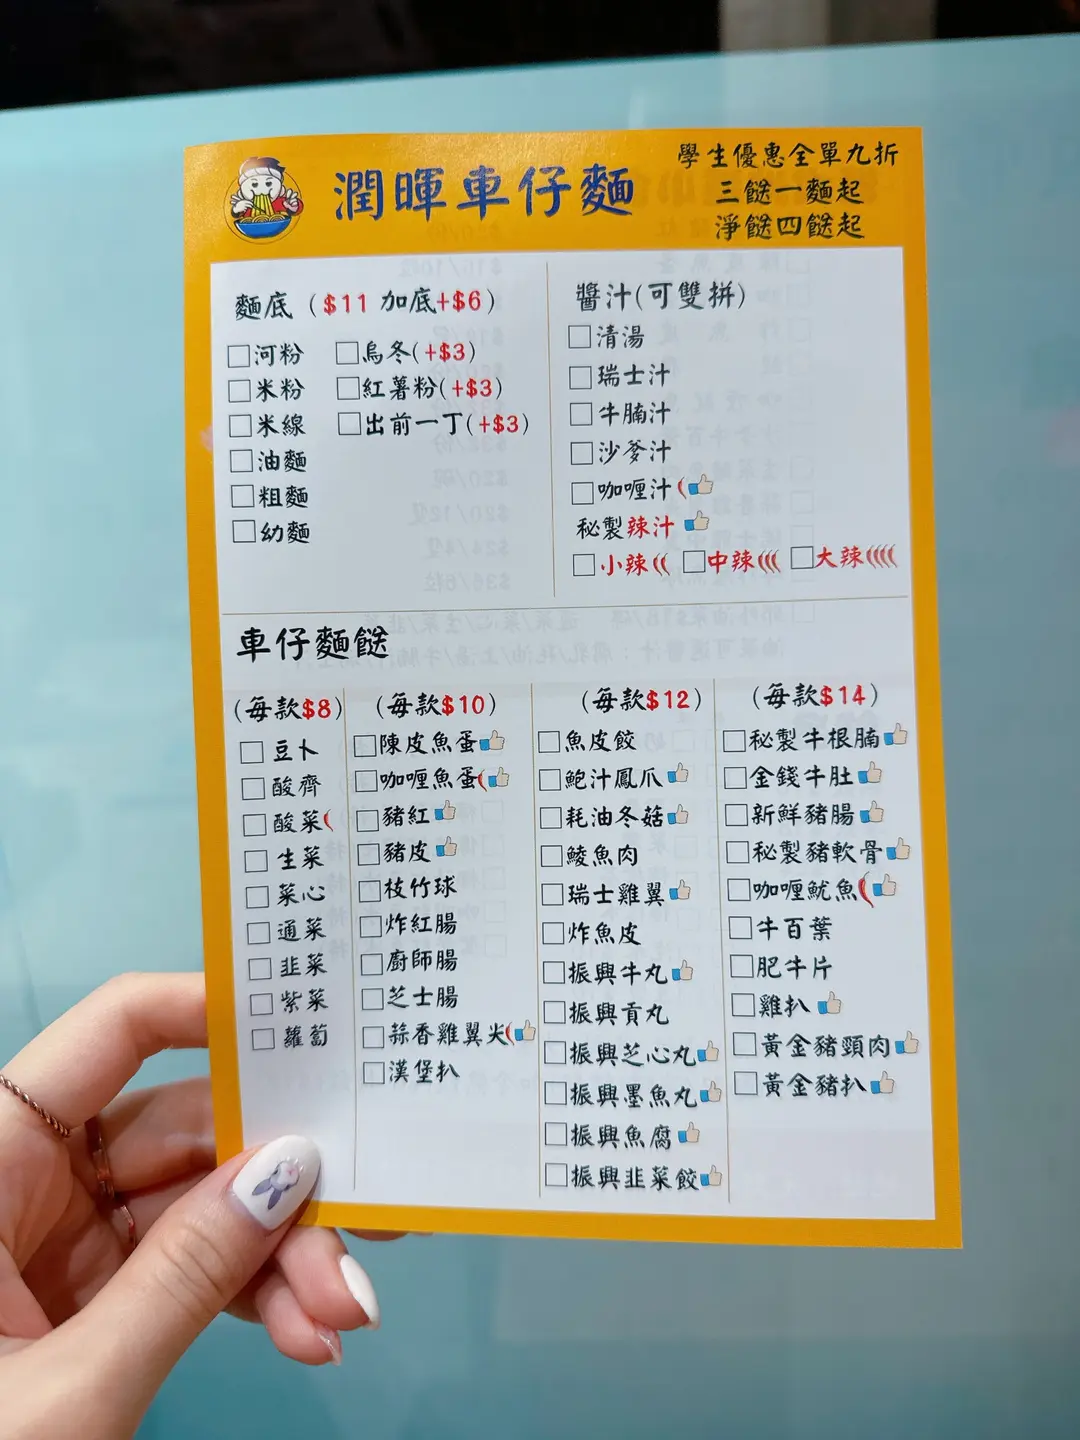 潤暉車仔麵
學生優惠全單九折
三餸一麵起
淨餸四餸起
麵底（$11 加底+$6）
河粉
米粉
米線
油麵
粗麵
幼麵
烏冬(+$3)
紅薯粉(+$3)
出前一丁(+$3)
醬汁(可雙拼)
清湯
瑞士汁
牛腩汁
沙爹汁
咖喱汁
秘製辣汁
小辣 中辣 大辣
車仔麵餸
(每款$8)
豆卜
酸齊
酸菜
生菜
菜心
通菜
韭菜
紫菜
蘿蔔
(每款$10)
陳皮魚蛋
咖喱魚蛋
豬紅
豬皮
枝竹球
炸紅腸
廚師腸
芝士腸
蒜香雞翼尖
漢堡扒
(每款$12)
魚皮餃
鮑汁鳳爪
耗油冬菇
鯪魚肉
瑞士雞翼
炸魚皮
振興牛丸
振興貢丸
振興芝心丸
振興墨魚丸
振興魚腐
振興韭菜餃
(每款$14)
秘製牛根腩
金錢牛肚
新鮮豬腸
秘製豬軟骨
咖喱魷魚
牛百葉
肥牛片
雞扒
黃金豬頸肉
黃金豬扒